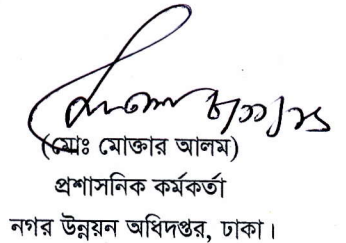 (মোঃ মোক্তার আলম)
প্রশাসনিক কর্মকর্তা
নগর উন্নয়ন অধিদপ্তর, ঢাকা।